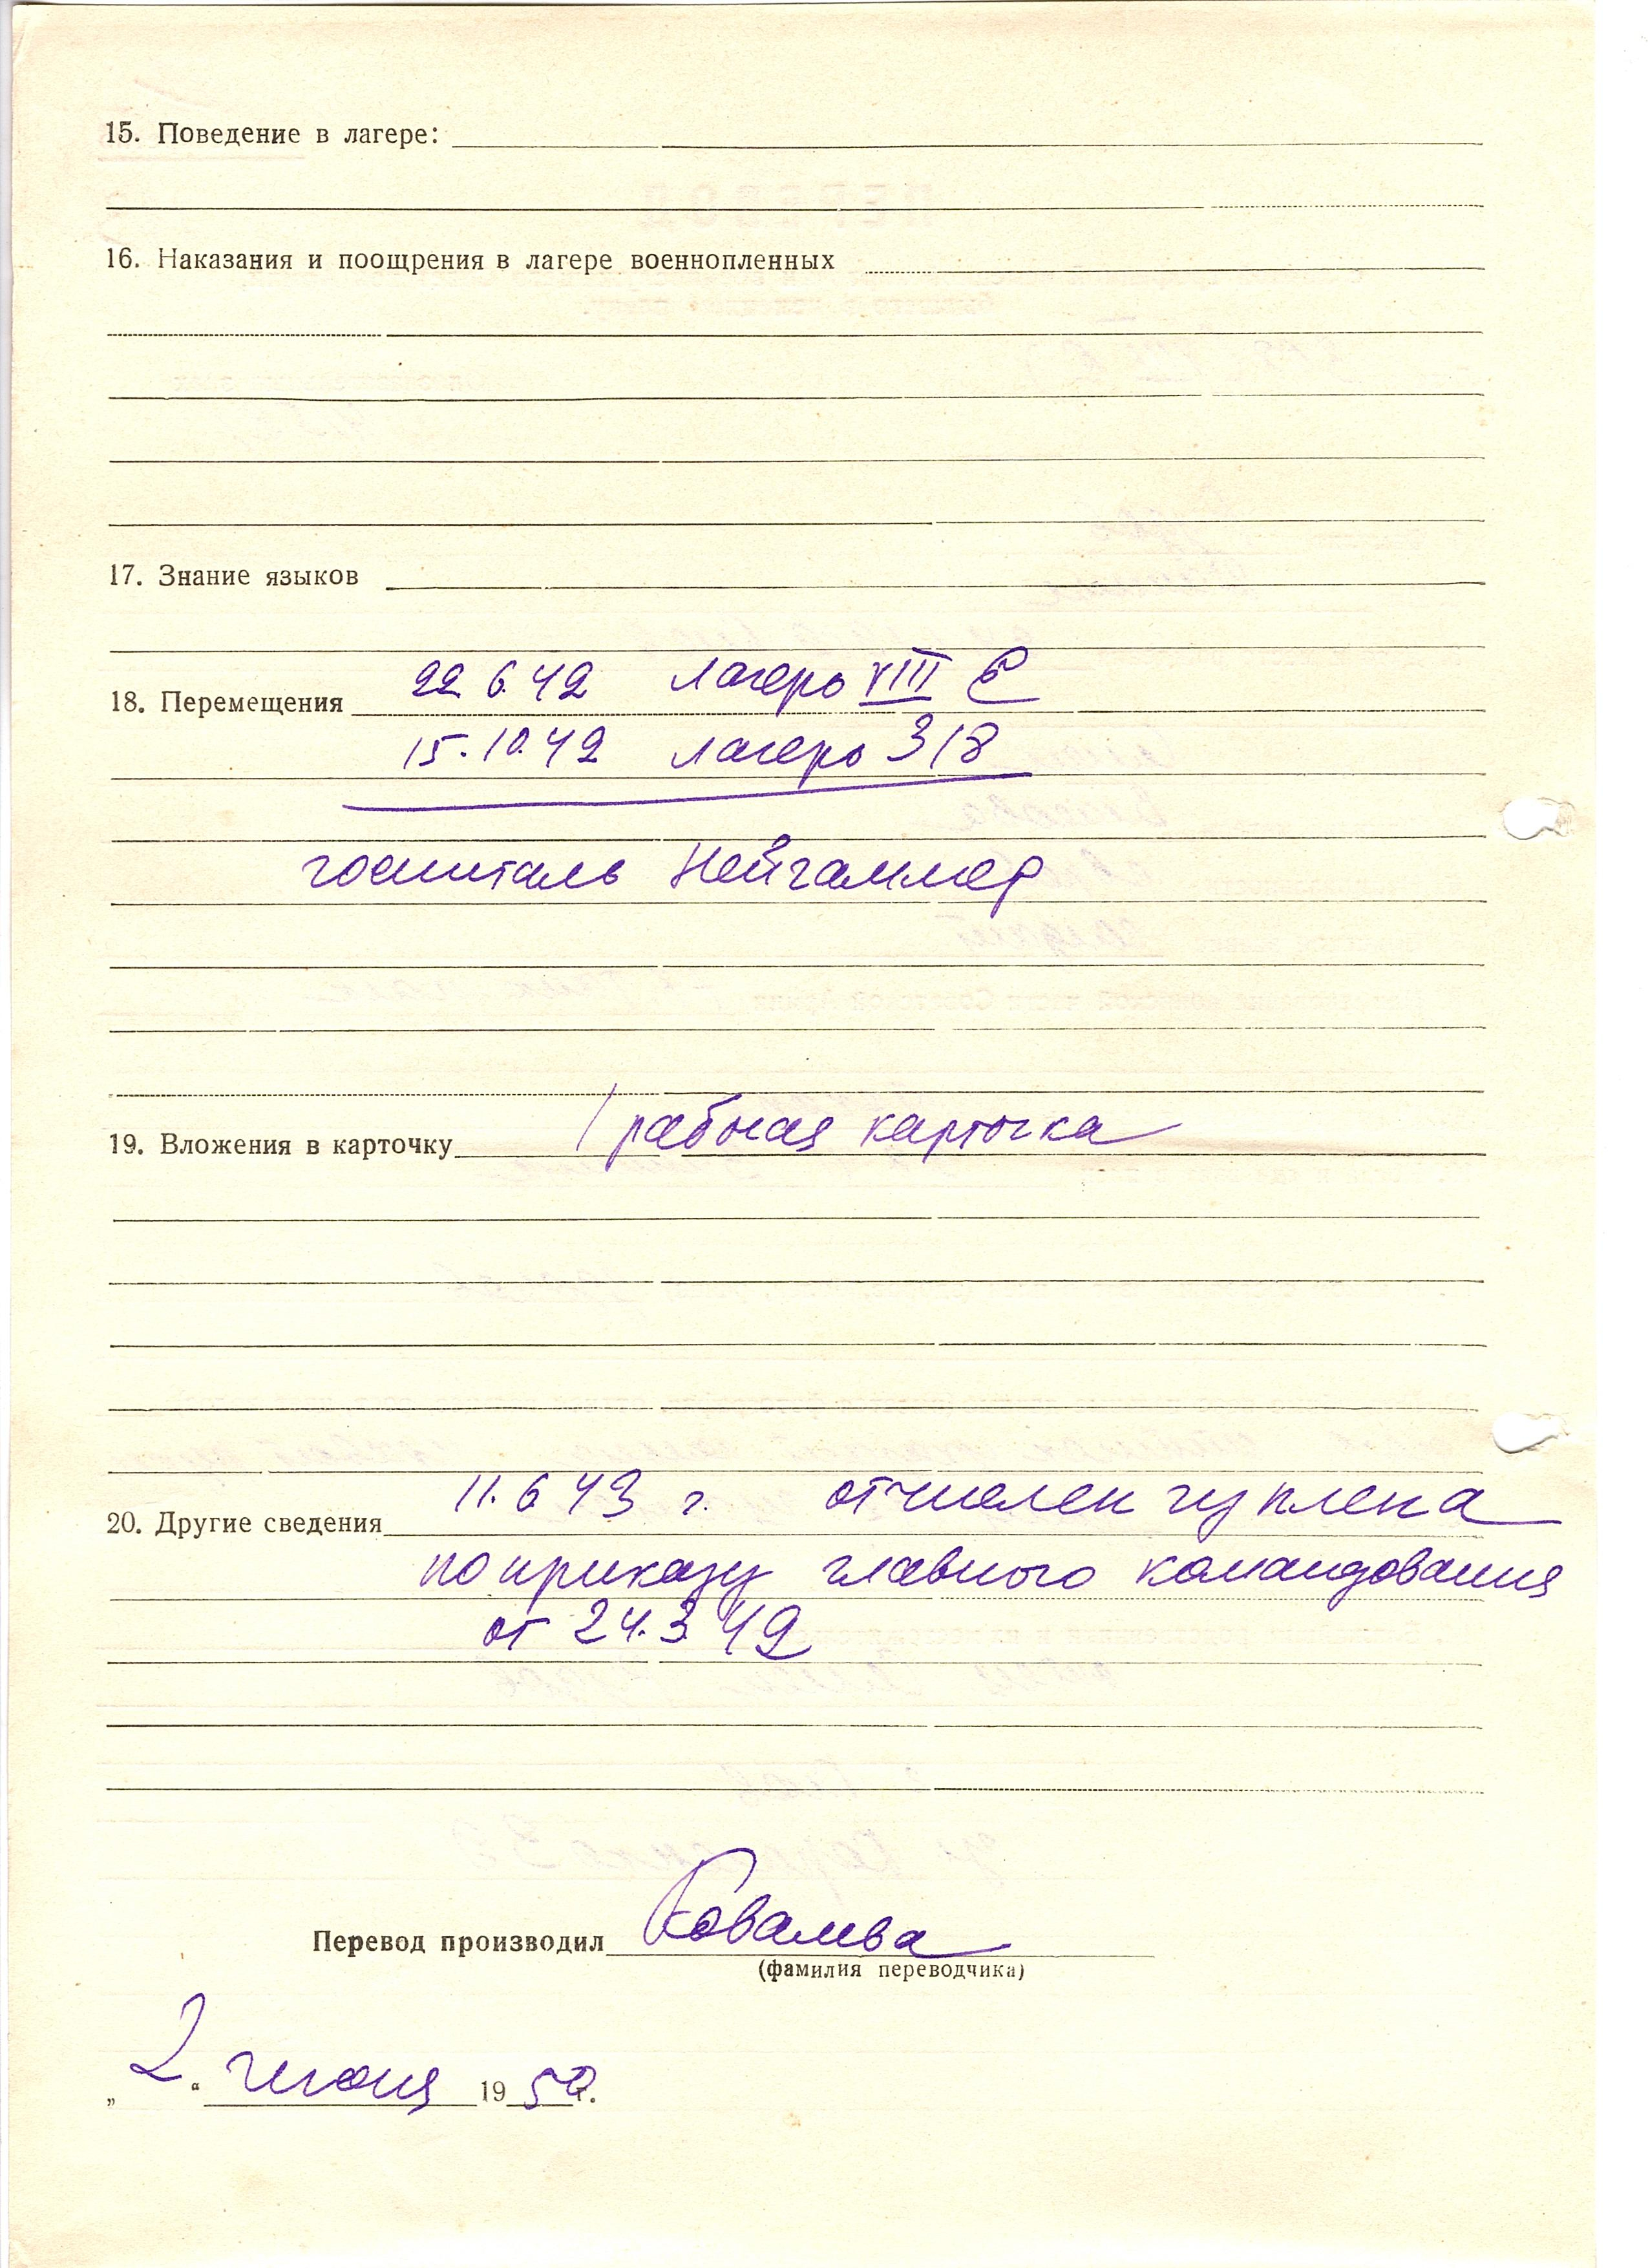 15. Поведение в лагере:
16. Наказания и поощрения в лагере военнопленных
17. Знание языков
22.6.42 лагерь VIII E
18. Перемещения
15.10.42 лагерь 318
госпиталь Нейгаммер
1 рабочая карточка
19. Вложения в карточку
11.6.43 г. отчислен из плена
20. Другие сведения
по приказу главного командования
от 24.3.42
Перевод производил Ковалева
(фамилия переводчика)
„2“ июня 1950 г.